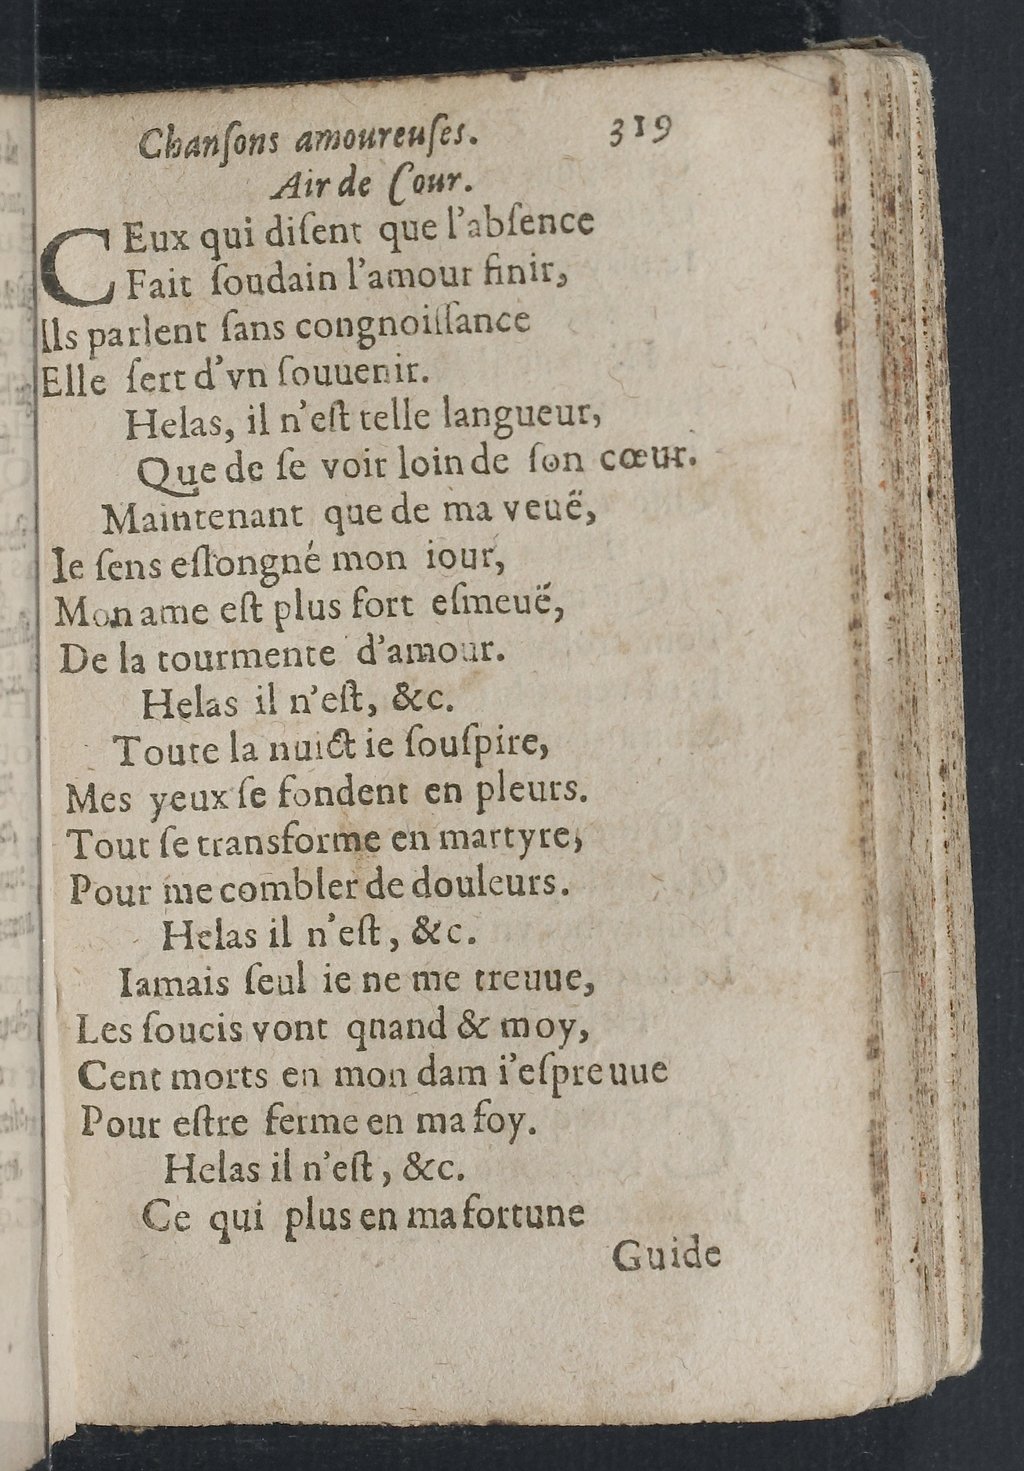 Chanſons amoureuſes. 319
Air de Cour.
CEux qui diſent que l'abſence
Fait ſoudain l'amour finir,
Ils parlent ſans congnoiſſance
Elle ſert d'vn ſouuenir.
Helas, il n'eſt telle langueur,
Que de ſe voir loin de ſon cœur.
Maintenant que de ma veuë,
Ie ſens eſlongné mon iour,
Mon ame eſt plus fort eſmeuë,
De la tourmente d'amour.
Helas il n'eſt, &c.
Toute la nuict ie ſouſpire,
Mes yeux ſe fondent en pleurs.
Tout ſe transforme en martyre,
Pour me combler de douleurs.
Helas il n'eſt, &c.
Iamais ſeul ie ne me treuue,
Les ſoucis vont quand & moy,
Cent morts en mon dam i'eſpreuue
Pour eſtre ferme en ma foy.
Helas il n'eſt, &c.
Ce qui plus en ma fortune
Guide